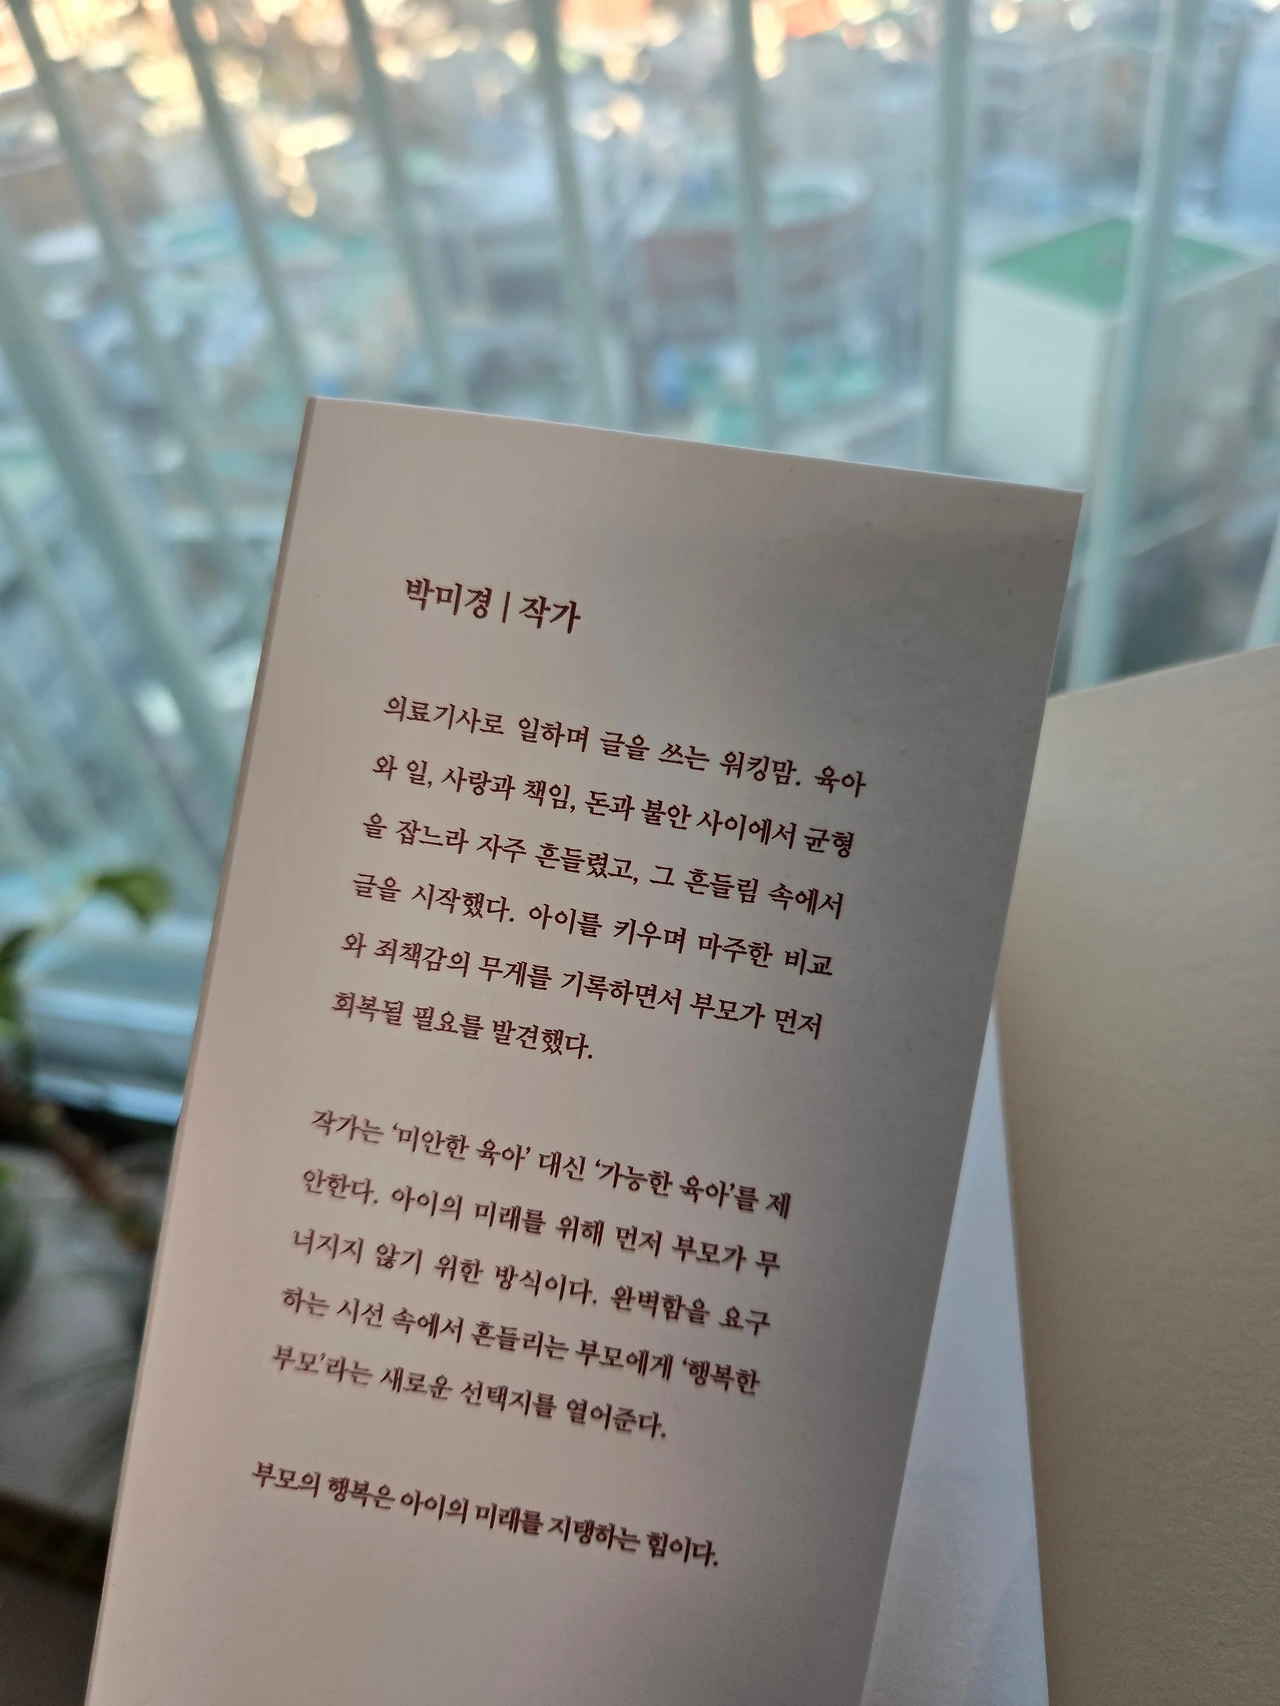 박미경 | 작가
의료기사로 일하며 글을 쓰는 워킹맘. 육아
와 일, 사랑과 책임, 돈과 불안 사이에서 균형
을 잡느라 자주 흔들렸고, 그 흔들림 속에서
글을 시작했다. 아이를 키우며 마주한 비교
와 죄책감의 무게를 기록하면서 부모가 먼저
회복될 필요를 발견했다.
작가는 ‘미안한 육아’ 대신 ‘가능한 육아’를 제
안한다. 아이의 미래를 위해 먼저 부모가 무
너지지 않기 위한 방식이다. 완벽함을 요구
하는 시선 속에서 흔들리는 부모에게 ‘행복한
부모’라는 새로운 선택지를 열어준다.
부모의 행복은 아이의 미래를 지탱하는 힘이다.